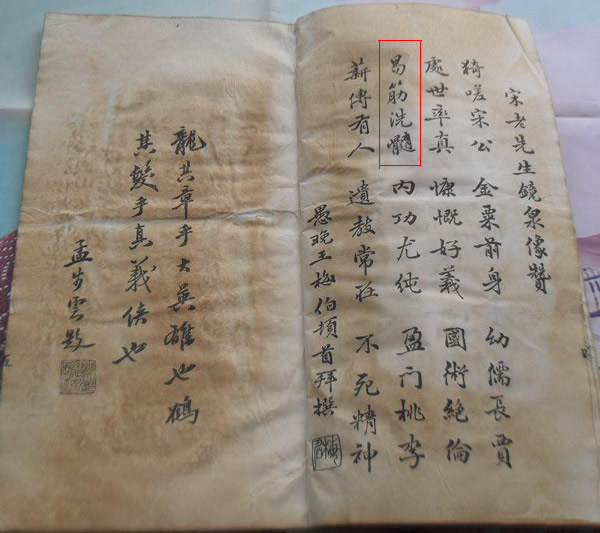 宋老先生鏡泉像贊
猗嗟宋公 金粟前身 幼儒長賈
處世率真 慷慨好義 國術絕倫
易筋洗髓 內功尤純 盈门桃李
薪傳有人 遺教常在 不死精神
愚晚王梅伯頓首拜撰
龍其章乎大英雄也鶴
其髮乎真義俠也
孟步雲題